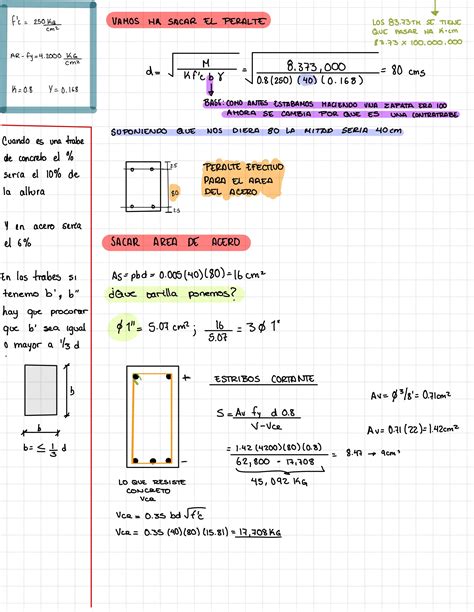 f'c = 250 Kg/cm²
AR - fy = 4.2000 KG/cm²
K=0.8 Y=0.168
VAMOS HA SACAR EL PERALTE
LOS 83.73TM SE TIENE
QUE PASAR HA K·cm
83.73 x 100,000.000
d = √ M / K f'c b Y = √ 8.373,000 / 0.8 (250) (40) (0.168) = 80 cms
BASE: COMO ANTES ESTABAMOS HACIENDO UNA ZAPATA ERA 100
AHORA SE CAMBIA POR QUE ES UNA CONTRATRABE
SUPONIENDO QUE NOS DIERA 80 LA MITAD SERIA 40 cm
Cuando es una trabe
de concreto el %
seria el 10% de
la altura
Y en acero seria
el 6%
En las trabes si
tenemo b', b"
hay que procurar
que b' sea igual
o mayor a 1/3 d
b
b
b = ≤ 1/3 d
2.5
80
2.5
PERALTE EFECTIVO
PARA EL AREA
DEL ACERO
SACAR AREA DE ACERO
As = pbd = 0.005 (40)(80) = 16 cm²
¿Que barilla ponemos?
Ø 1" = 5.07 cm² ; 16/5.07 = 3 Ø 1"
+
-
ESTRIBOS CORTANTE
S = Av fy d 0.8 / V - Vcr
= 1.42 (4200)(80)(0.8) / 62,800 - 17,708 = 8.47 → 9cm²
45,092 KG
Av = Ø 3/8' = 0.71cm²
Av = 0.71 (22) = 1.42cm²
LO QUE RESISTE
CONCRETO
Vcr
Vcr = 0.35 bd √f'c
Vcr = 0.35 (40)(80) (15.81) = 17,708 KG